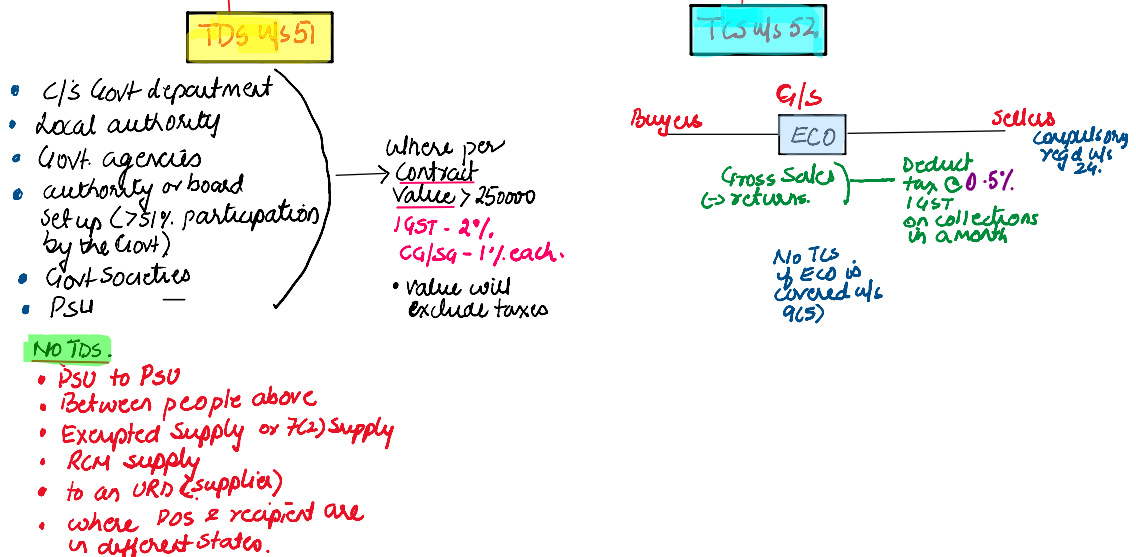 TDS u/s 51
• C/S Govt department
• Local authority
• Govt. agencies
• authority or board
set up (>51% participation
by the Govt)
• Govt Societies
• PSU
where per
Contract
Value > 250000
IGST - 2%.
CG/SG - 1% each.
• Value will
exclude taxes
NO TDS.
• PSU to PSU
• Between people above
• Exempted Supply or 7(2) Supply
• RCM supply
• to an URD (supplier)
• where POS & recipient are
in different states.
TCS u/s 52
G/S
Buyers
ECO
Sellers
compulsory
regd u/s
24.
Gross Sales
(-) returns.
Deduct
tax @ 0.5%.
IGST
on collections
in a month
No TCS
if ECO is
covered u/s
9(5)